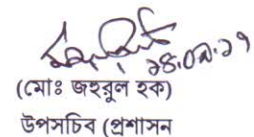 ১৪.০৯.১৭
(মোঃ জহুরুল হক)
উপসচিব (প্রশাসন